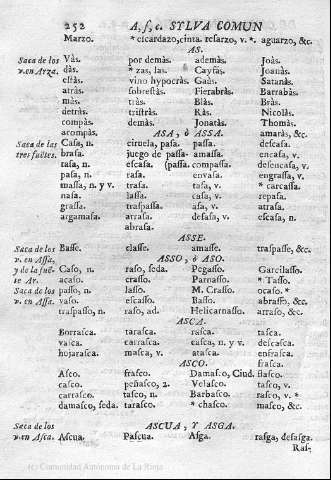 252 A, s, c. SYLVA COMUN
Marzo. * cicardazo, cinta. resarzo, v. *. aguarzo, &c.
AS.
Saca de los Vàs. por demàs. ademàs. Joàs.
v. en Arza. dàs. * zas, las. Cayfàs. Joanàs.
estàs. vino hypocràs. Gaùs. Satanàs.
atràs. sobrestàs. Fierabràs. Barrabàs.
màs. tràs. Blàs. Bràs.
detràs. tristràs. Ràs. Nicolàs.
compàs. demàs. Jonatàs. Thomàs.
acompàs. ASA, ò ASSA. amaràs, &c.
Saca de las Casa, n. ciruela, pasa. passa. descasa.
tres suertes. brasa. juego de passa. amassa. encasa, v.
tasa, n. escasa. (passa. compassa. desvenasa, v.
pasa, n. rasa. envasa. engrassa, v.
massa, n. y v. trasa. tasa, v. * carcassa.
nasa. lassa. casa, v. repasa.
grassa. traspassa. asa, v. atrasa.
argamasa. arrasa. desasa, v. escasa, n.
abrasa.
ASSE.
Saca de los Basse. classe. amasse. traspasse, &c.
v. en Assa, ASSO, ò ASO.
y de la sue- Caso, n. raso, seda. Pegasso. Garcilasso.
te Ar. acaso. crasso. Parnasso. * Tasso.
Saca de los passo, n. lasso. M. Crasso. ocaso. *
v. en Assa. vaso. escasso. Basso. abrasso, &c.
traspasso, n. raso, ad. Helicarnasso. arraso, &c.
ASCA.
Borrasca. tarasca. rasca. tasca.
vaica. carrasca. casca, n. y v. descasca.
hojarasca. masca, v. atasca. enfrasca.
ASCO.
Asco. frasco. Damasco, Ciud. fiasco.
casco. peñasco, 2. Velasco. tasco, v.
carrasco. tasco, n. Barbasco. rasco, v. *
damasco, seda. tarasco. * chasco. masco, &c.
ASCUA, Y ASGA.
Saca de los
v. en Asca. Ascua. Pascua. Asga. rasga, desasga.
Ras-
(c) Comunidad Autónoma de La Rioja